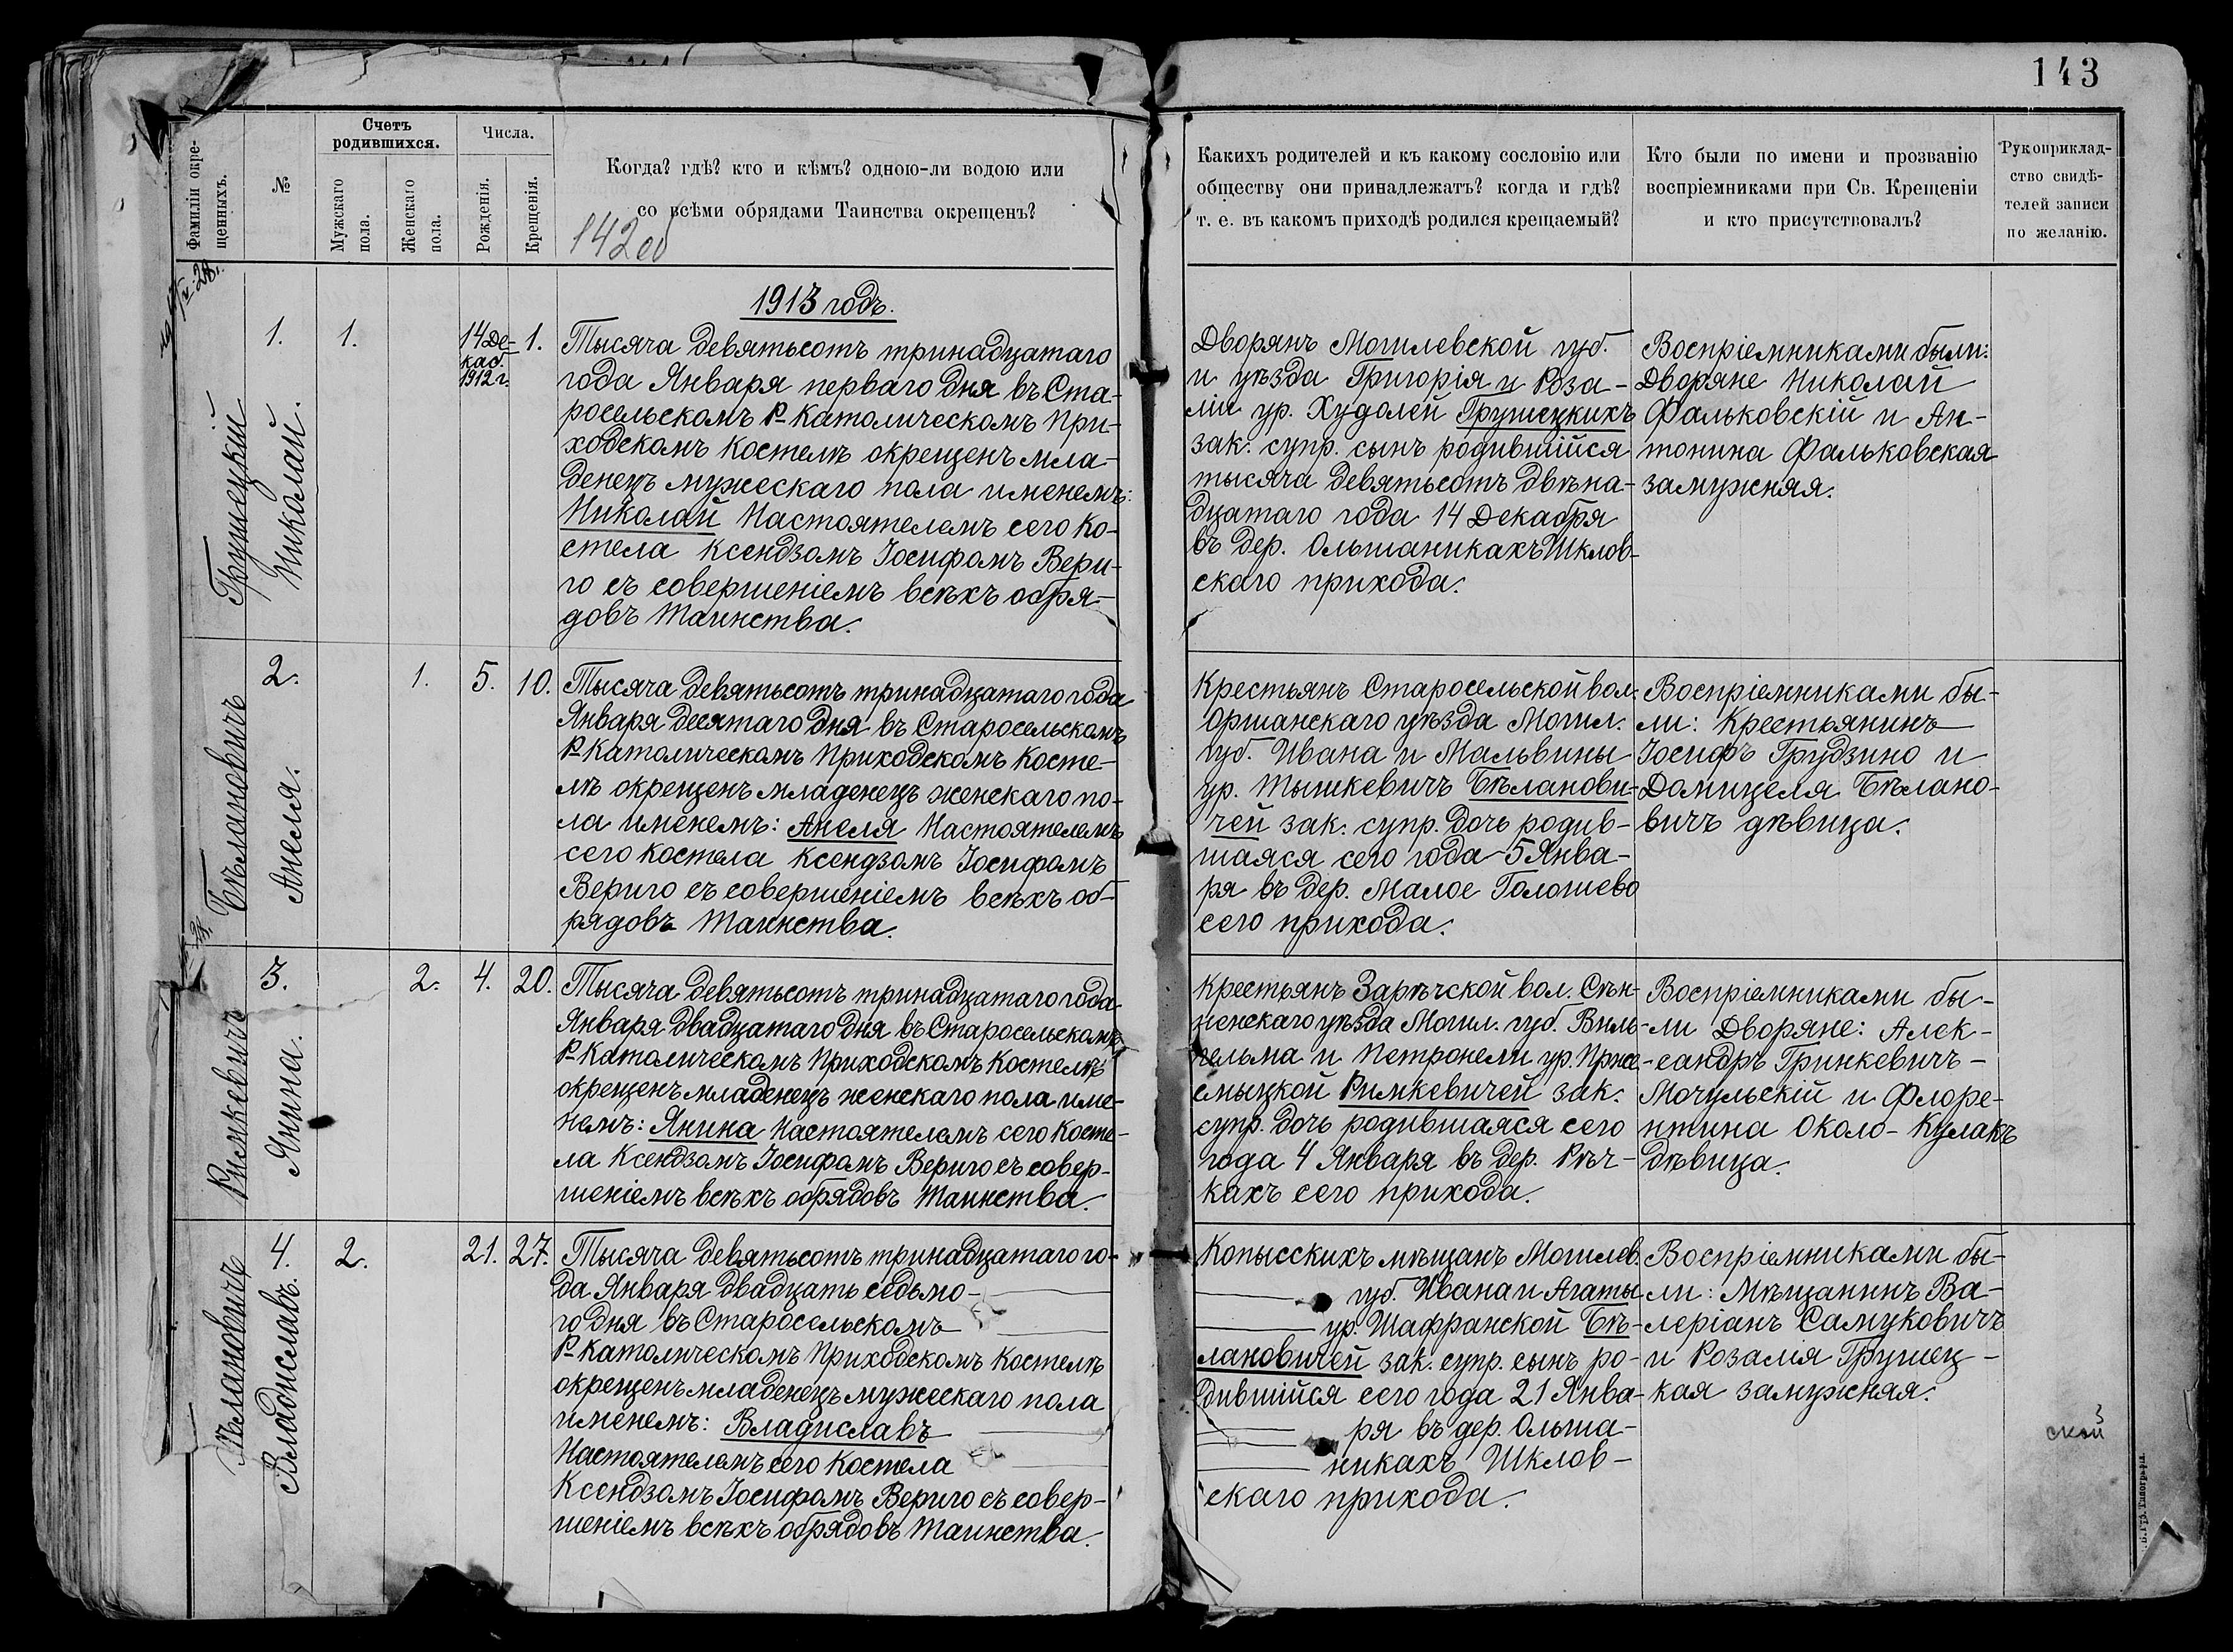 143
Фамиліи окре-
щенныхъ.
№
Счетъ
родившихся.
Мужскаго
пола.
Женскаго
пола.
Числа.
Рожденія.
Крещенія.
Когда? гдѣ? кто и кѣмъ? одною-ли водою или
со всѣми обрядами Таинства окрещенъ?
142 об
Какихъ родителей и къ какому сословію или
обществу они принадлежатъ? когда и гдѣ?
т. е. въ какомъ приходѣ родился крещаемый?
Кто были по имени и прозванію
воспріемниками при Св. Крещеніи
и кто присутствовалъ?
Рукоприклад-
ство свидѣ-
телей записи
по желанію.
1913 годъ.
Грушецкій
Николай.
1.
1.
14 Де-
каб.
1912 г.
1.
Тысяча девятьсотъ тринадцатаго
года Января перваго дня въ Ста-
росельскомъ Р-Католическомъ При-
ходскомъ Костелѣ окрещенъ мла-
денецъ мужескаго пола именемъ:
Николай Настоятелемъ сего Ко-
стела Ксендзомъ Іосифомъ Вери-
го съ совершеніемъ всѣхъ обря-
довъ Таинства.
Дворянъ Могилевской губ.
и уѣзда Григорія и Роза-
ліи ур. Худолей Грушецкихъ
зак. супр. сынъ родившійся
тысяча девятьсотъ двѣна-
дцатаго года 14 Декабря
въ дер. Ольшаникахъ Шклов-
скаго прихода.
Воспріемниками были:
Дворяне Николай
Фальковскій и Ан-
тонина Фальковская
замужняя.
Бѣлановичъ
Анеля.
2.
1.
5.
10.
Тысяча девятьсотъ тринадцатаго года
Января десятаго дня въ Старосельскомъ
Р-Католическомъ Приходскомъ Косте-
лѣ окрещенъ младенецъ женскаго по-
ла именемъ: Анеля Настоятелемъ
сего Костела Ксендзомъ Іосифомъ
Вериго съ совершеніемъ всѣхъ об-
рядовъ Таинства.
Крестьянъ Старосельской вол.
Оршанскаго уѣзда Могил.
губ. Ивана и Мальвины
ур. Тышкевичъ Бѣланови-
чей зак. супр. дочь родив-
шаяся сего года 5 Янва-
ря въ дер. Малое Голошево
сего прихода.
Воспріемниками бы-
ли: Крестьянинъ
Іосифъ Грудзино и
Домицеля Бѣлано-
вичъ дѣвица.
Римкевичъ
Янина.
3.
2.
4.
20.
Тысяча девятьсотъ тринадцатаго года
Января двадцатаго дня въ Старосельскомъ
Р-Католическомъ Приходскомъ Костелѣ
окрещенъ младенецъ женскаго пола име-
немъ: Янина Настоятелемъ сего Косте-
ла Ксендзомъ Іосифомъ Вериго съ совер-
шеніемъ всѣхъ обрядовъ Таинства.
Крестьянъ Зарѣчской вол. Сѣн-
ненскаго уѣзда Могил. губ. Виль-
гельма и Петронели ур. Прже-
смыцкой Римкевичей зак.
супр. дочь родившаяся сего
года 4 Января въ дер. Рѣч-
кахъ сего прихода.
Воспріемниками бы-
ли Дворяне: Алек-
сандръ Гринкевичъ-
Мочульскій и Флоре-
нтина Около-Кулакъ
дѣвица.
Бѣлановичъ
Владиславъ.
4.
2.
21.
27.
Тысяча девятьсотъ тринадцатаго го-
да Января двадцать седьмо-
го дня въ Старосельскомъ
Р-Католическомъ Приходскомъ Костелѣ
окрещенъ младенецъ мужескаго пола
именемъ: Владиславъ
Настоятелемъ сего Костела
Ксендзомъ Іосифомъ Вериго съ совер-
шеніемъ всѣхъ обрядовъ Таинства.
Копысскихъ мѣщанъ Могилев.
губ. Ивана и Агаты
ур. Шафранской Бѣ-
лановичей зак. супр. сынъ ро-
дившійся сего года 21 Янва-
ря въ дер. Ольша-
никахъ Шклов-
скаго прихода.
Воспріемниками бы-
ли: Мѣщанинъ Ва-
леріанъ Самуковичъ
и Розалія Грушец-
кая замужняя.
ской